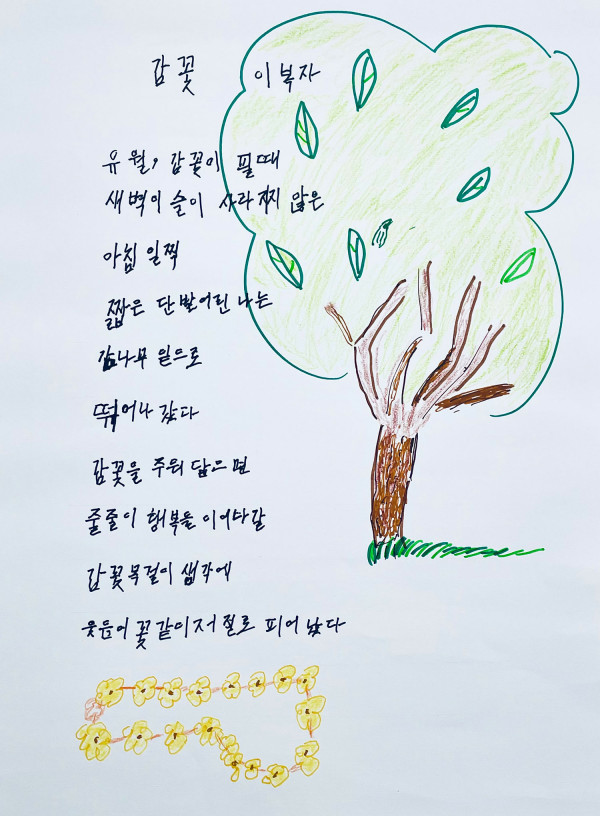 감꽃 이복자
유월, 감꽃이 필때
새벽이슬이 사라지지 않은
아침 일찍
짧은 단발어린 나는
감나무 밑으로
뛰어나갔다
감꽃을 주워 담으면
줄줄이 행복을 이어나갈
감꽃목걸이 생각에
웃음이 꽃같이 저절로 피어났다